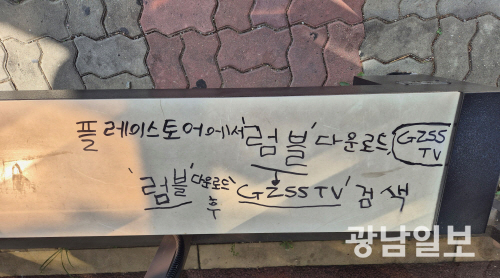 플레이스토어에서 '럼블' 다운로드, GZSS TV
'럼블' 다운로드 후 'GZSS TV' 검색
광남일보